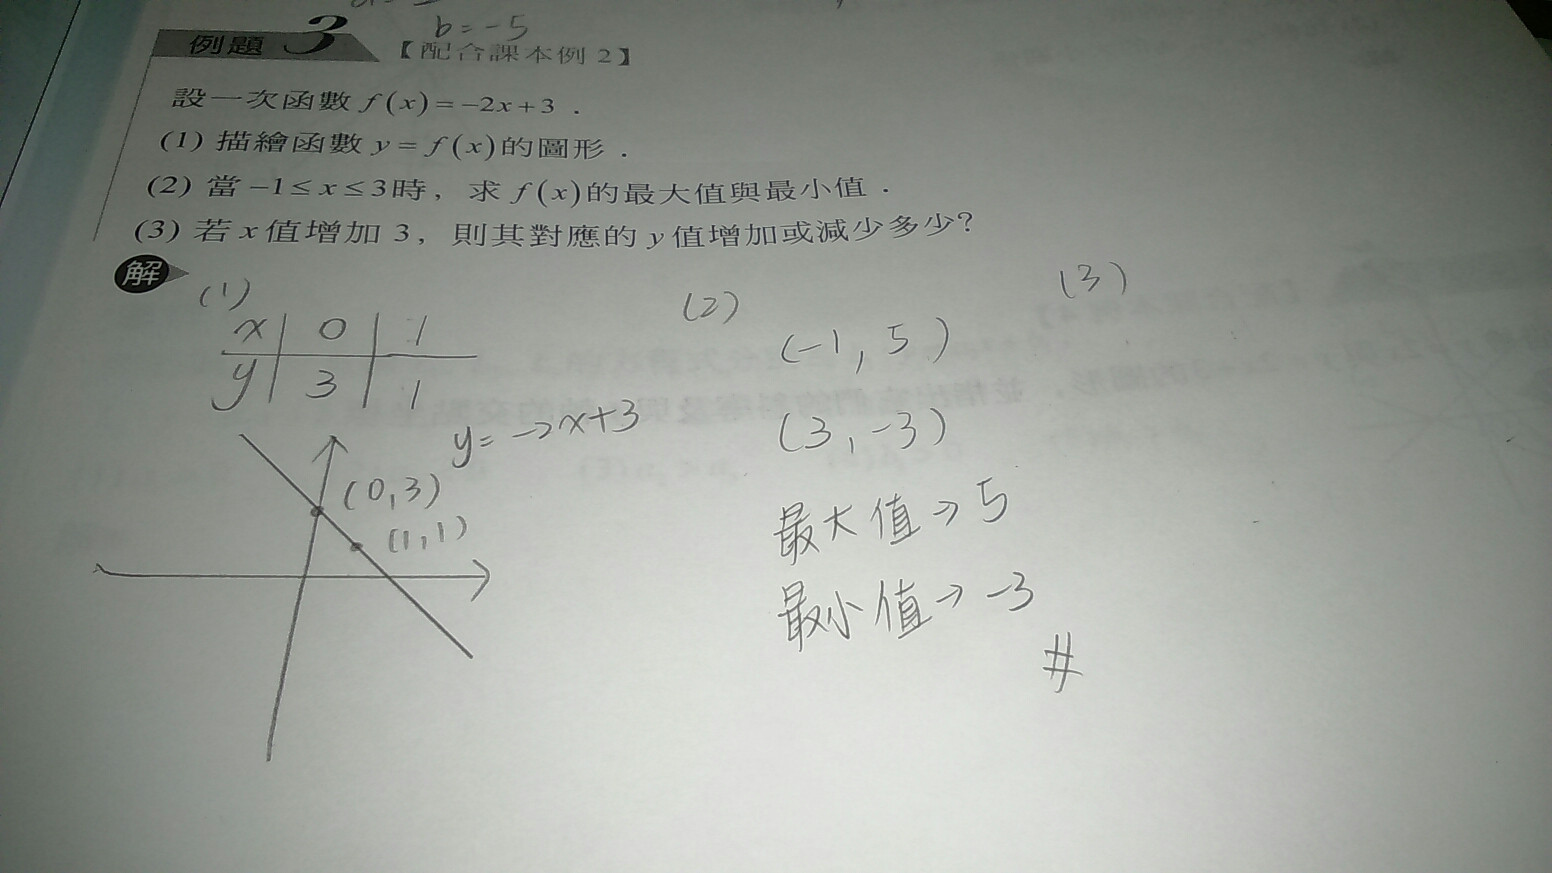 b=-5
例題 3 【配合課本例 2】
設一次函數 f(x)=-2x+3 .
(1) 描繪函數 y=f(x)的圖形 .
(2) 當 -1≤x≤3時，求 f(x)的最大值與最小值 .
(3) 若 x 值增加 3，則其對應的 y 值增加或減少多少?
解
(1)
x 0 1
y 3 1
y=-2x+3
(0,3)
(1,1)
(2)
(-1,5)
(3,-3)
最大值→5
最小值→-3
#
(3)